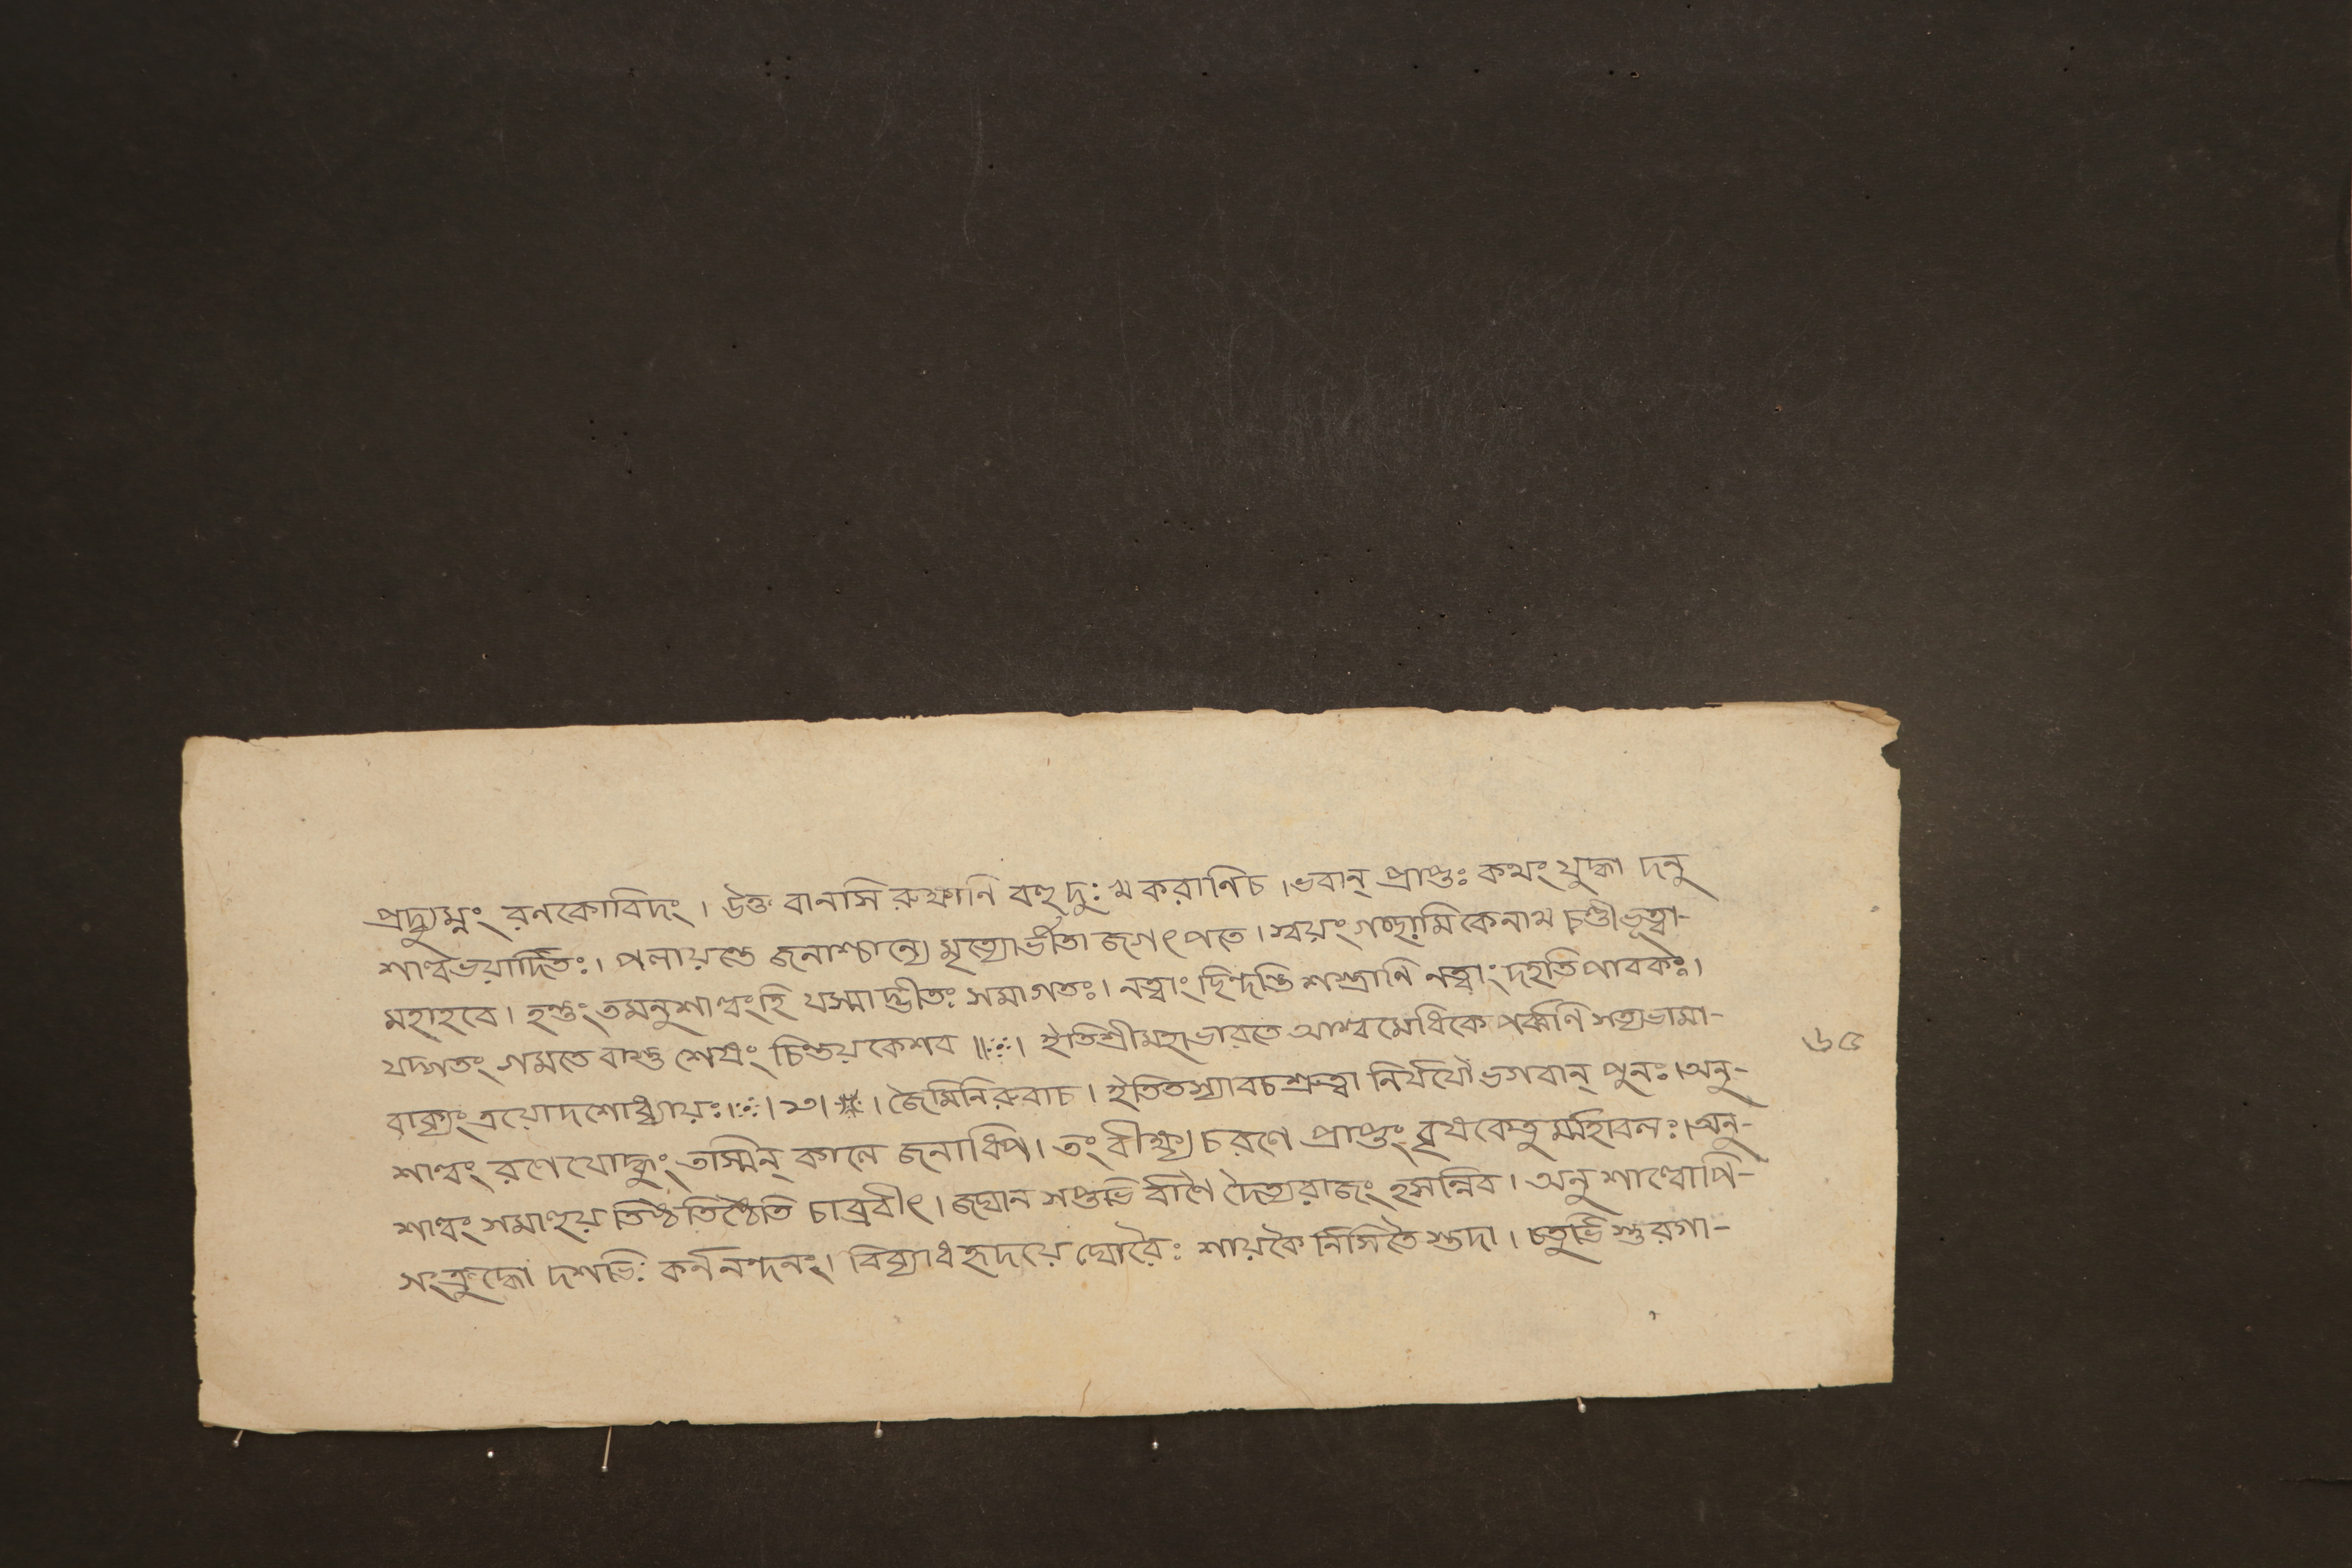 প্রদ্যুম্নং রনকোবিদং । উক্ত বানসি রুক্ষানি বহু দু: খ করাণিচ । ভবান্ প্রাপ্তঃ কথং যুদ্ধা দনু
শাল্বভয়ার্দিতঃ । পলায়ন্তে জনাশ্চান্যে মৃত্যোর্ভীতা জগৎপতে । স্বয়ংগচ্ছামি কেনাথ চণ্ডীভূত্বা-
মহাহবে । হন্তুং তমনুশাল্বংহি যস্মাদ্ভীতঃ সমাগতঃ । নত্বাং ছিন্দন্তি শস্ত্রানি নত্বাং দহতি পাবকঃ ।
যদ্গতং গমতে বাহ্য শেষং চিন্তয় কেশব ॥ঃ। ইতিশ্রীমহাভারতে আশ্বমেধিকে পর্ব্বণি সত্যভামা-
বাক্যং ত্রয়োদশোধ্যায়ঃ ।ঃ। ১৩। * । জৈমিনিরুবাচ । ইতিতস্যাবচশ্রুত্বা নির্যযৌ ভগবান্ পুনঃ । অনু-
শাল্বং রণে যোদ্ধুং তস্মিন্ কালে জনাধিপ । তং বীক্ষ্য চরণে প্রাপ্তং বৃষকেতু র্ম্মহাবলঃ । অনু-
শাল্বং সমাহূয় তিষ্ঠতিষ্ঠেতি চাব্রবীৎ । জঘান সপ্তভি র্বাণৈ দৈত্যরাজং হসন্নিব । অনুশাল্বোপি-
সংক্রুদ্ধো দশভিঃ কর্ননন্দনং । বিব্যাধ হৃদয়ে ঘোরৈঃ শায়কৈ র্নিসিতৈ স্তদা । চতুর্ভি স্তুরগা-
৬৫